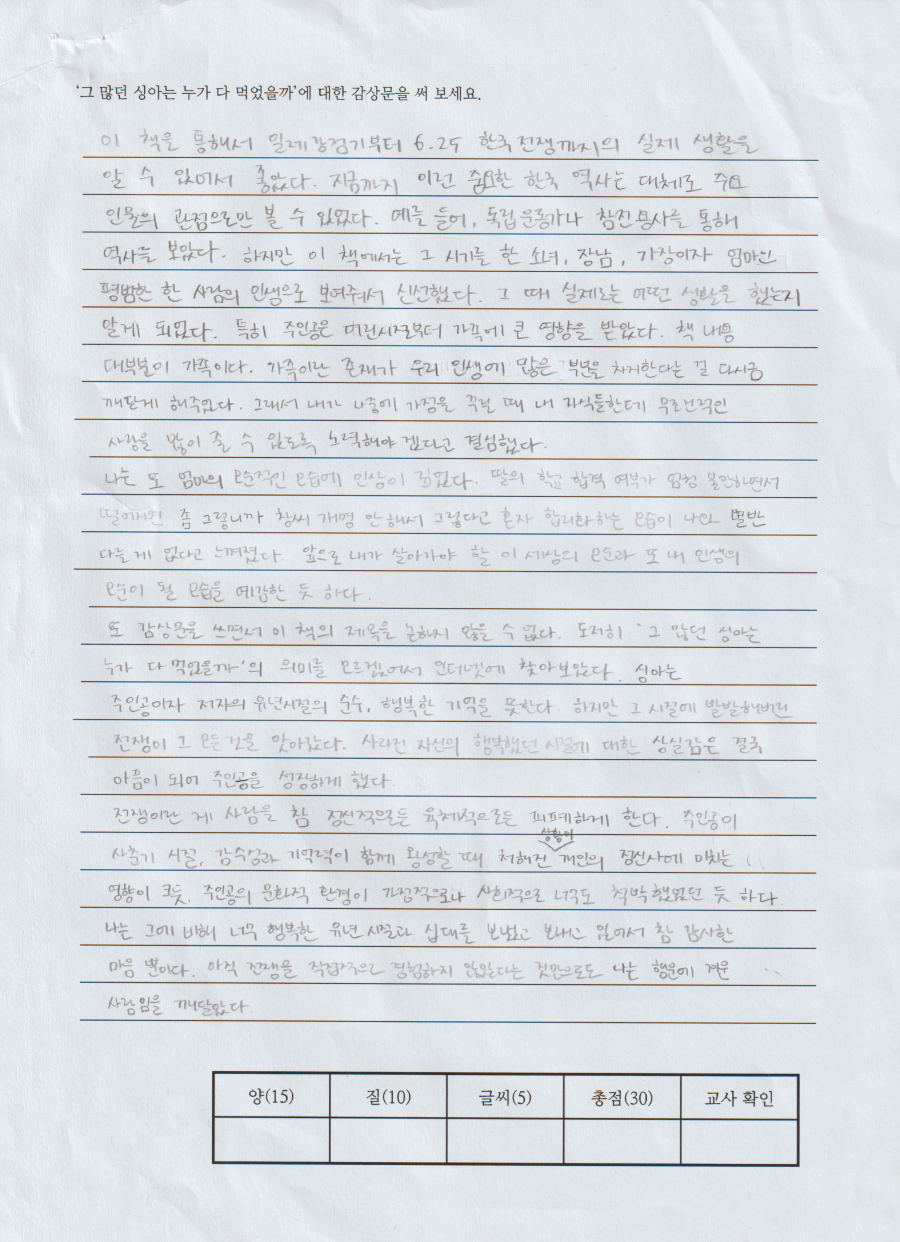 '그 많던 싱아는 누가 다 먹었을까'에 대한 감상문을 써 보세요.
이 책을 통해서 일제강점기부터 6.25 한국전쟁까지의 실제 생활을
알 수 있어서 좋았다. 지금까지 이런 중요한 한국 역사는 대체로 주요
인물의 관점으로만 볼 수 있었다. 예를 들어, 독립운동가나 참전용사를 통해
역사를 보았다. 하지만 이 책에서는 그 시기를 한 소녀, 장남, 가장이자 엄마인
평범한 한 사람의 인생으로 보여줘서 신선했다. 그 때 실제로는 어떤 생활을 했는지
알게 되었다. 특히 주인공은 어린시절부터 가족에 큰 영향을 받았다. 책 내용
대부분이 가족이다. 가족이란 존재가 우리 인생에 많은 부분을 차지한다는 걸 다시금
깨닫게 해주었다. 그래서 내가 나중에 가정을 꾸릴 때 내 자식들한테 무조건적인
사랑을 많이 줄 수 있도록 노력해야겠다고 결심했다.
나는 또 엄마의 모순적인 모습에 인상이 깊었다. 딸의 학교 합격 여부가 엄청 불안하면서
떨어지면 좀 그렇니까 창씨 개명 안해서 그렇다고 혼자 합리화하는 모습이 나와 별반
다를 게 없다고 느껴졌다. 앞으로 내가 살아가야 할 이 세상의 모순과 또 내 인생의
모순이 될 모습을 예감한 듯 하다.
또 감상문을 쓰면서 이 책의 제목을 논하지 않을 수 없다. 도저히 '그 많던 싱아는
누가 다 먹었을까'의 의미를 모르겠어서 인터넷에 찾아보았다. 싱아는
주인공이자 저자의 유년시절의 순수, 행복한 기억을 뜻한다. 하지만 그 시절에 발발해버린
전쟁이 그 모든 것을 앗아갔다. 사라진 자신의 행복했던 시절에 대한 상실감은 결국
아픔이 되어 주인공을 성장하게 했다.
전쟁이란 게 사람을 참 정신적으로든 육체적으로든 피폐하게 한다. 주인공이
사춘기 시절, 감수성과 기억력이 함께 왕성할 때 처해진 상황이 개인의 정신사에 미치는
영향이 크듯, 주인공의 문화적 환경이 가정적으로나 사회적으로 너무도 척박했었던 듯 하다.
나는 그에 비해 너무 행복한 유년 시절과 십대를 보냈고 보내고 있어서 참 감사한
마음 뿐이다. 아직 전쟁을 직접적으로 경험하지 않았다는 것만으로도 나는 행운에 겨운
사람임을 깨달았다.
양(15) 질(10) 글씨(5) 총점(30) 교사 확인